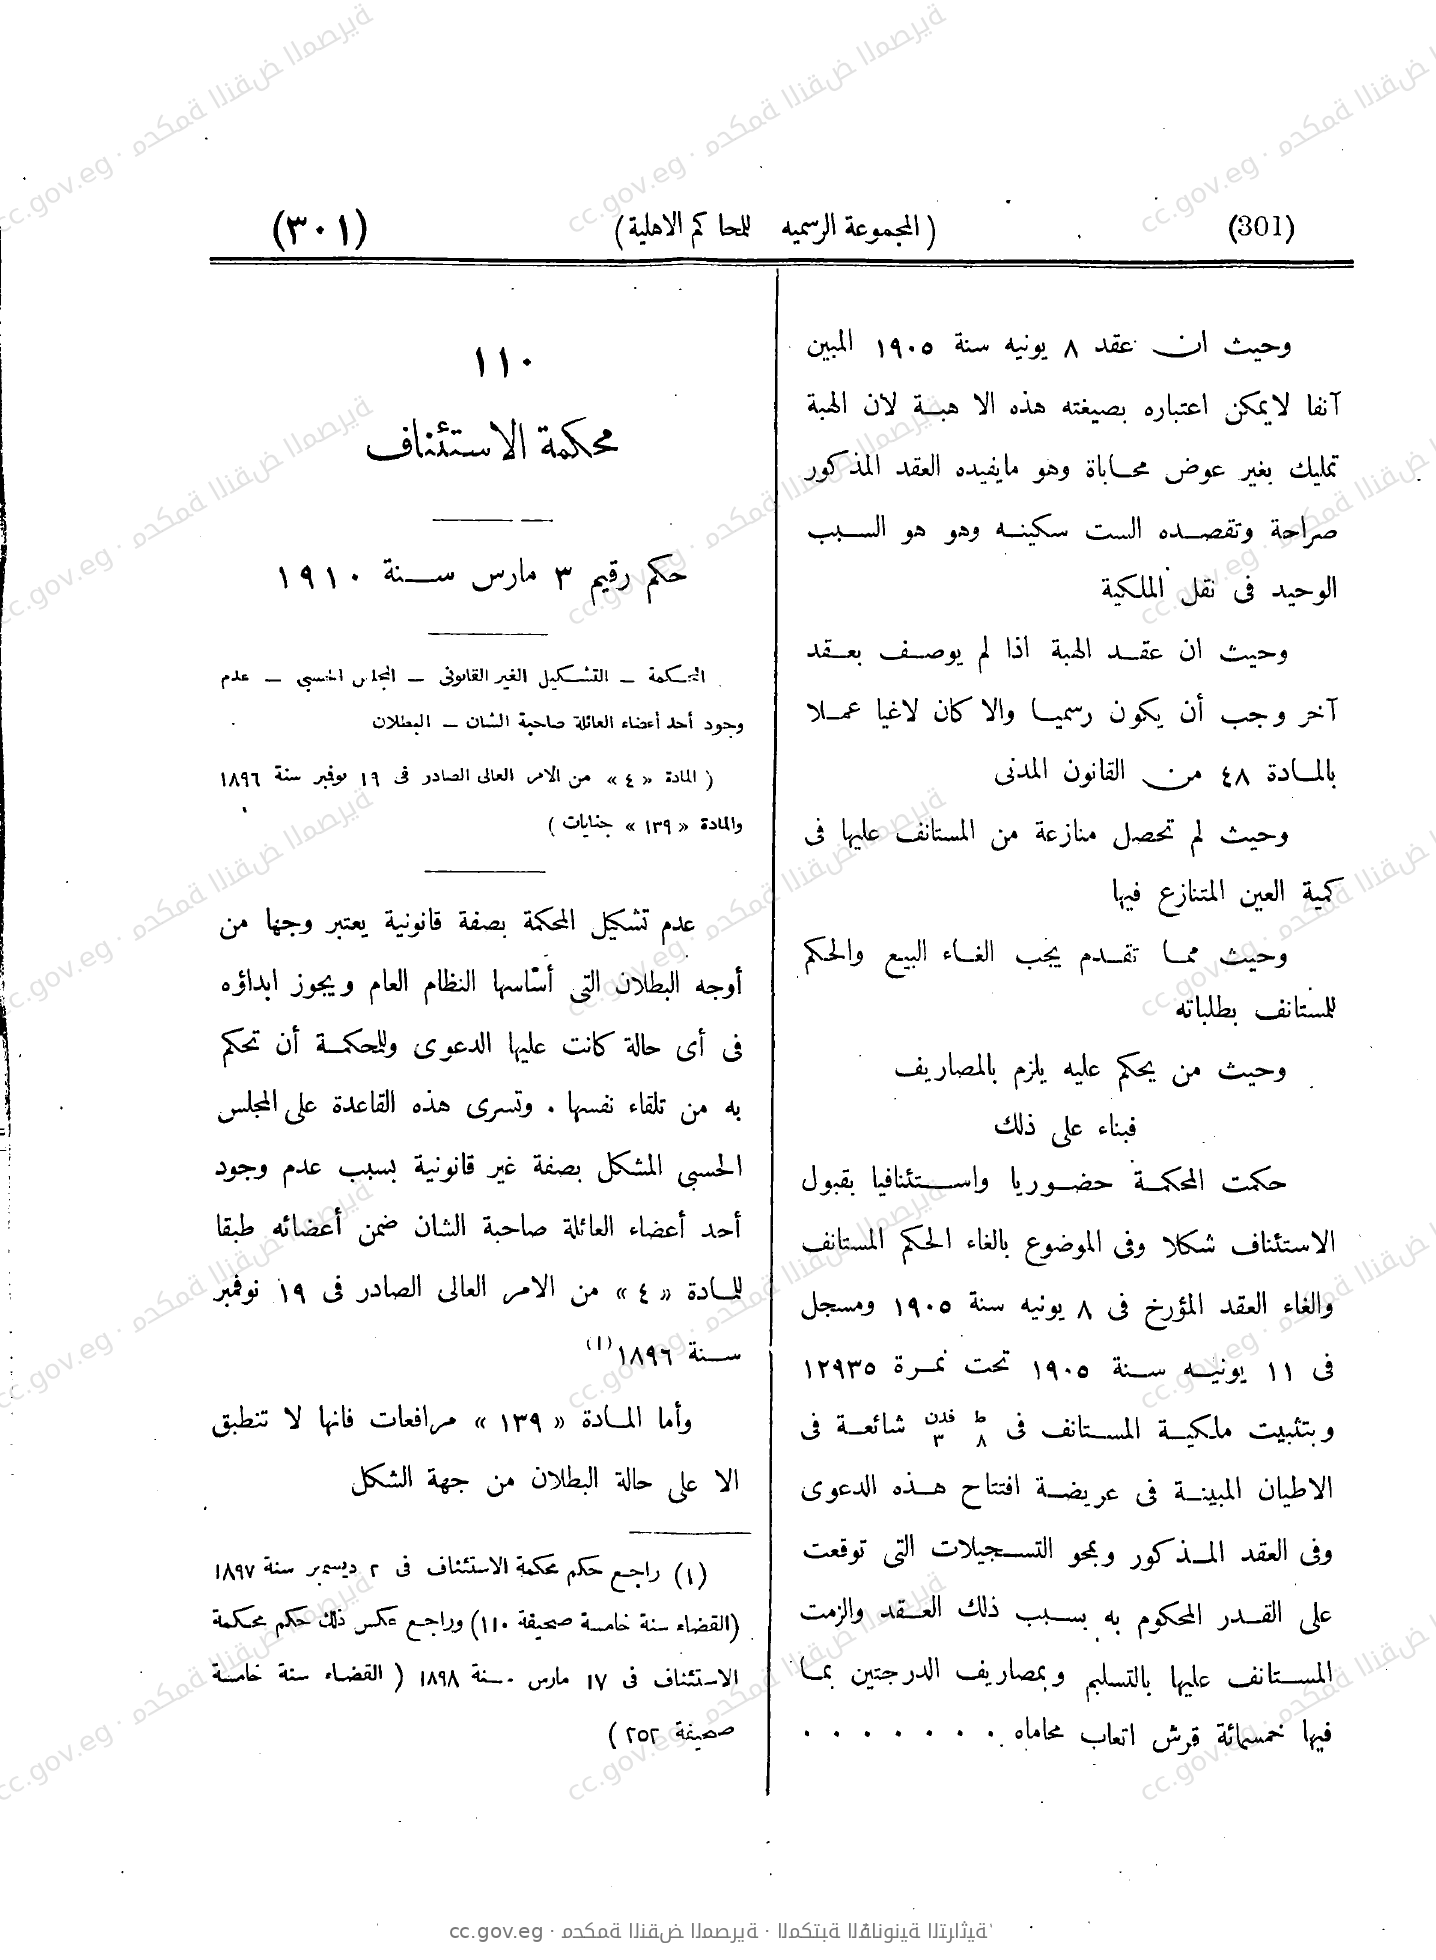 (301)
(المجموعة الرسميه للمحاكم الاهلية)
(٣٠١)
وحيث ان عقد ٨ يونيه سنة ١٩٠٥ المبين
آنفا لايمكن اعتباره بصيغته هذه الا هبة لان الهبة
تمليك بغير عوض محاباة وهو مايفيده العقد المذكور
صراحة وتقصده الست سكينه وهو هو السبب
الوحيد فى نقل الملكية
وحيث ان عقد الهبة اذا لم يوصف بعقد
آخر وجب أن يكون رسميا والا كان لاغيا عملا
بالمادة ٤٨ من القانون المدنى
وحيث لم تحصل منازعة من المستانف عليها فى
كمية العين المتنازع فيها
وحيث مما تقدم يجب الغاء البيع والحكم
للمستانف بطلباته
وحيث من يحكم عليه يلزم بالمصاريف
فبناء على ذلك
حكمت المحكمة حضوريا واستئنافيا بقبول
الاستئناف شكلا وفى الموضوع بالغاء الحكم المستانف
والغاء العقد المؤرخ فى ٨ يونيه سنة ١٩٠٥ ومسجل
فى ١١ يونيه سنة ١٩٠٥ تحت نمرة ١٢٩٣٥
وبتثبيت ملكية المستانف فى ٨ ط ٣ فدن شائعة فى
الاطيان المبينة فى عريضة افتتاح هذه الدعوى
وفى العقد المذكور وبمحو التسجيلات التى توقعت
على القدر المحكوم به بسبب ذلك العقد والزمت
المستانف عليها بالتسليم وبمصاريف الدرجتين بما
فيها خمسمائة قرش اتعاب محاماه . . . . . . . .
١١٠
محكمة الاستئناف
حكم رقيم ٣ مارس سنة ١٩١٠
المحكمة – التشكيل الغير القانونى – المجلس الحسبي – عدم
وجود أحد أعضاء العائلة صاحبة الشان – البطلان
(المادة «٤» من الامر العالى الصادر فى ١٩ نوفمبر سنة ١٨٩٦
والمادة «١٣٩» جنايات)
عدم تشكيل المحكمة بصفة قانونية يعتبر وجها من
أوجه البطلان التى أساسها النظام العام ويجوز ابداؤه
فى أى حالة كانت عليها الدعوى وللمحكمة أن تحكم
به من تلقاء نفسها . وتسرى هذه القاعدة على المجلس
الحسبى المشكل بصفة غير قانونية بسبب عدم وجود
أحد أعضاء العائلة صاحبة الشان ضمن أعضائه طبقا
للمادة «٤» من الامر العالى الصادر فى ١٩ نوفمبر
سنة ١٨٩٦ (١)
وأما المادة «١٣٩» مرافعات فانها لا تنطبق
الا على حالة البطلان من جهة الشكل
(١) راجع حكم محكمة الاستئناف فى ٢ ديسمبر سنة ١٨٩٧
(القضاء سنة خامسة صحيفة ١١٠) وراجع عكس ذلك حكم محكمة
الاستئناف فى ١٧ مارس سنة ١٨٩٨ (القضاء سنة خامسة
صحيفة ٢٥٢)
cc.gov.eg · محكمة النقض المصرية · المكتبة القانونية التراثية